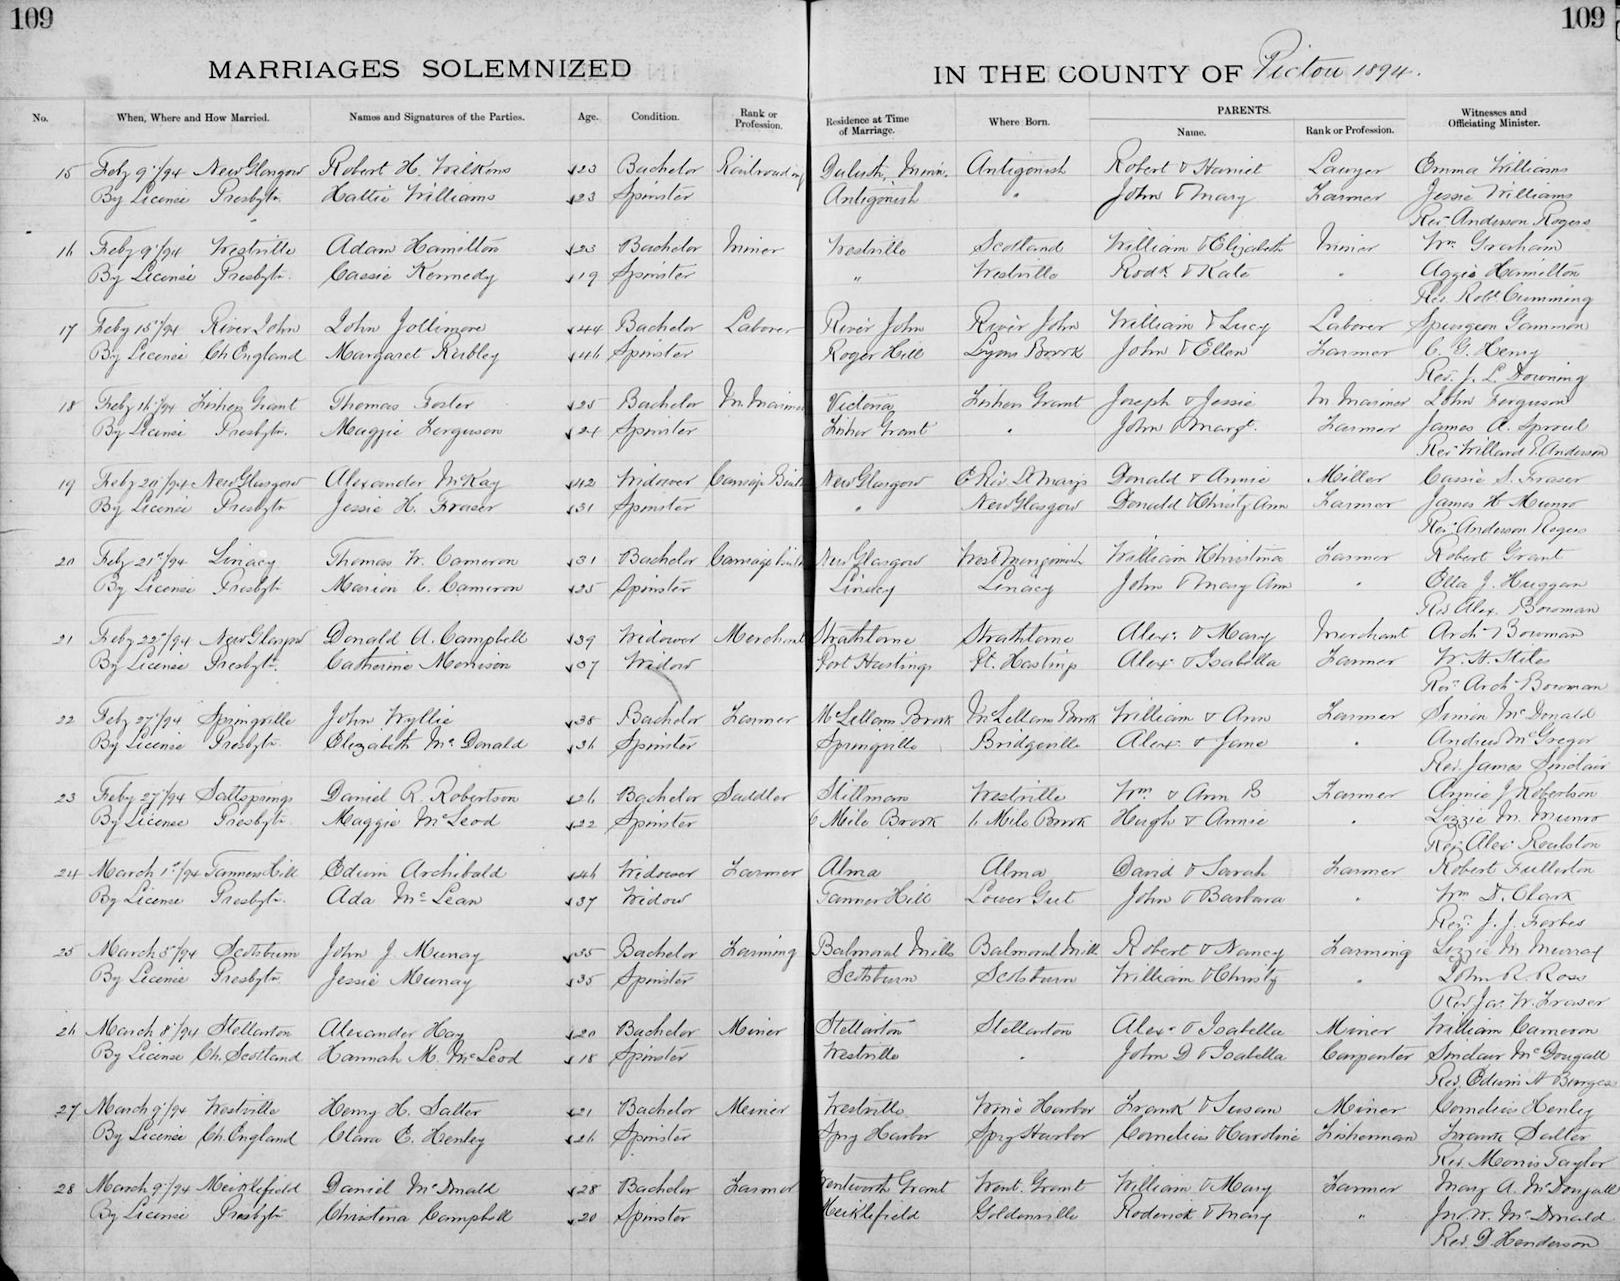 109
109
MARRIAGES SOLEMNIZED IN THE COUNTY OF Pictou 1894.
No. When, Where and How Married. Names and Signatures of the Parties. Age. Condition. Rank or Profession. Residence at Time of Marriage. Where Born. PARENTS. Name. Rank or Profession. Witnesses and Officiating Minister.
15 Feby 9"/94 New Glasgow Robert H. Wilkons 23 Bachelor Railroading Duluth, Minn. Antigonish Robert & Harriet Lawyer Emma Williams
By License Presbytn. Hattie Williams 23 Spinster Antigonish " John & Mary Farmer Jessie Williams
Rev. Anderson Rogers
16 Feby 9"/94 Westville Adam Hamilton 23 Bachelor Miner Westville Scotland William & Elizabeth Miner Wm. Graham
By License Presbytn. Cassie Kennedy 19 Spinster " Westville Rodk. & Kate " Aggie Hamilton
Rev. Robt. Cumming
17 Feby 15"/94 River John John Jollimore 44 Bachelor Laborer River John River John William & Lucy Laborer Spurgeon Gammon
By License Ch. England Margaret Rubley 46 Spinster Roger Hill Lyons Brook John & Ellen Farmer C. G. Henry
Rev. J. L. Downing
18 Feby 16"/94 Fishers Grant Thomas Foster 25 Bachelor M. Mariner Victoria Fishers Grant Joseph & Jessie M Mariner John Ferguson
By License Presbytn. Maggie Ferguson 24 Spinster Fisher Grant " John & Margt. Farmer James A. Sproul
Rev Willard P. Anderson
19 Feby 20"/94 New Glasgow Alexander McKay 42 Widower Carriage Build New Glasgow E Riv. St Marys Donald & Annie Miller Cassie S. Fraser
By License Presbytn Jessie H. Fraser 31 Spinster " New Glasgow Donald & Christy Ann Farmer James H Munro
Rev. Anderson Rogers
20 Feby 21"/94 Linacy Thomas W. Cameron 31 Bachelor Carriage build New Glasgow West Merigomish William & Christina Farmer Robert Grant
By License Presbytn Marion C. Cameron 25 Spinster Linacy Linacy John & Mary Ann " Ella J. Huggan
Rev Alex. Bowman
21 Feby 22"/94 New Glasgow Donald A. Campbell 39 Widower Merchant Strathlorne Strathlorne Alex. & Mary Merchant Archd. Bowman
By License Presbytn. Catherine Morrison 37 Widow Port Hastings Pt. Hastings Alex. & Isabella Farmer W. H. Stiles
Rev. Archd. Bowman
22 Feby 27"/94 Springville John Wyllie 38 Bachelor Farmer McLellans Brook McLellans Brook William & Ann Farmer Simon McDonald
By License Presbytn. Elizabeth McDonald 36 Spinster Springville Bridgeville Alex. & Jane " Andrew McGregor
Rev. James Sinclair
23 Feby 27"/94 Saltsprings Daniel R. Robertson 26 Bachelor Saddler Stillman Westville Wm & Ann B Farmer Annie J. Robertson
By License Presbytn. Maggie McLeod 22 Spinster 6 Mile Brook 6 Mile Brook Hugh & Annie " Lizzie M. Munro
Rev. Alex. Roulston
24 March 1"/94 Tanner Hill Edwin Archibald 46 Widower Farmer Alma Alma David & Sarah Farmer Robert Fullerton
By License Presbytn. Ada McLean 37 Widow Tanner Hill Lower Gut John & Barbara " Wm D. Clark
Rev. J. J. Forbes
25 March 5"/94 Scotsburn John J. Murray 35 Bachelor Farming Balmoral Mills Balmoral Mill Robert & Nancy Farming Lizzie M Murray
By License Presbytn. Jessie Murray 35 Spinster Scotsburn Scotsburn William & Christy " John R Ross
Rev. Jas. W. Fraser
26 March 8"/94 Stellarton Alexander Hay 20 Bachelor Miner Stellarton Stellarton Alex. & Isabella Miner William Cameron
By License Ch. Scotland Hannah M. McLeod 18 Spinster Westville " John D & Isabella Carpenter Sinclair McDougall
Rev. Edwin H Burgess
27 March 9"/94 Westville Henry H. Salter 21 Bachelor Meiner Westville Wine Harbor Frank & Susan Miner Cornelius Henley
By License Ch. England Clara E. Henley 26 Spinster Spry Harbor Spry Harbor Cornelius & Caroline Fisherman Frank Salter
Rev. Morris Taylor
28 March 9"/94 Meiklefield Daniel McDonald 28 Bachelor Farmer Wentworth Grant Went. Grant William & Mary Farmer Mary A. McDougall
By License Presbytn Christina Campbell 20 Spinster Meiklefield Goldenville Roderick & Mary " Jno. W. McDonald
Rev. D. Henderson